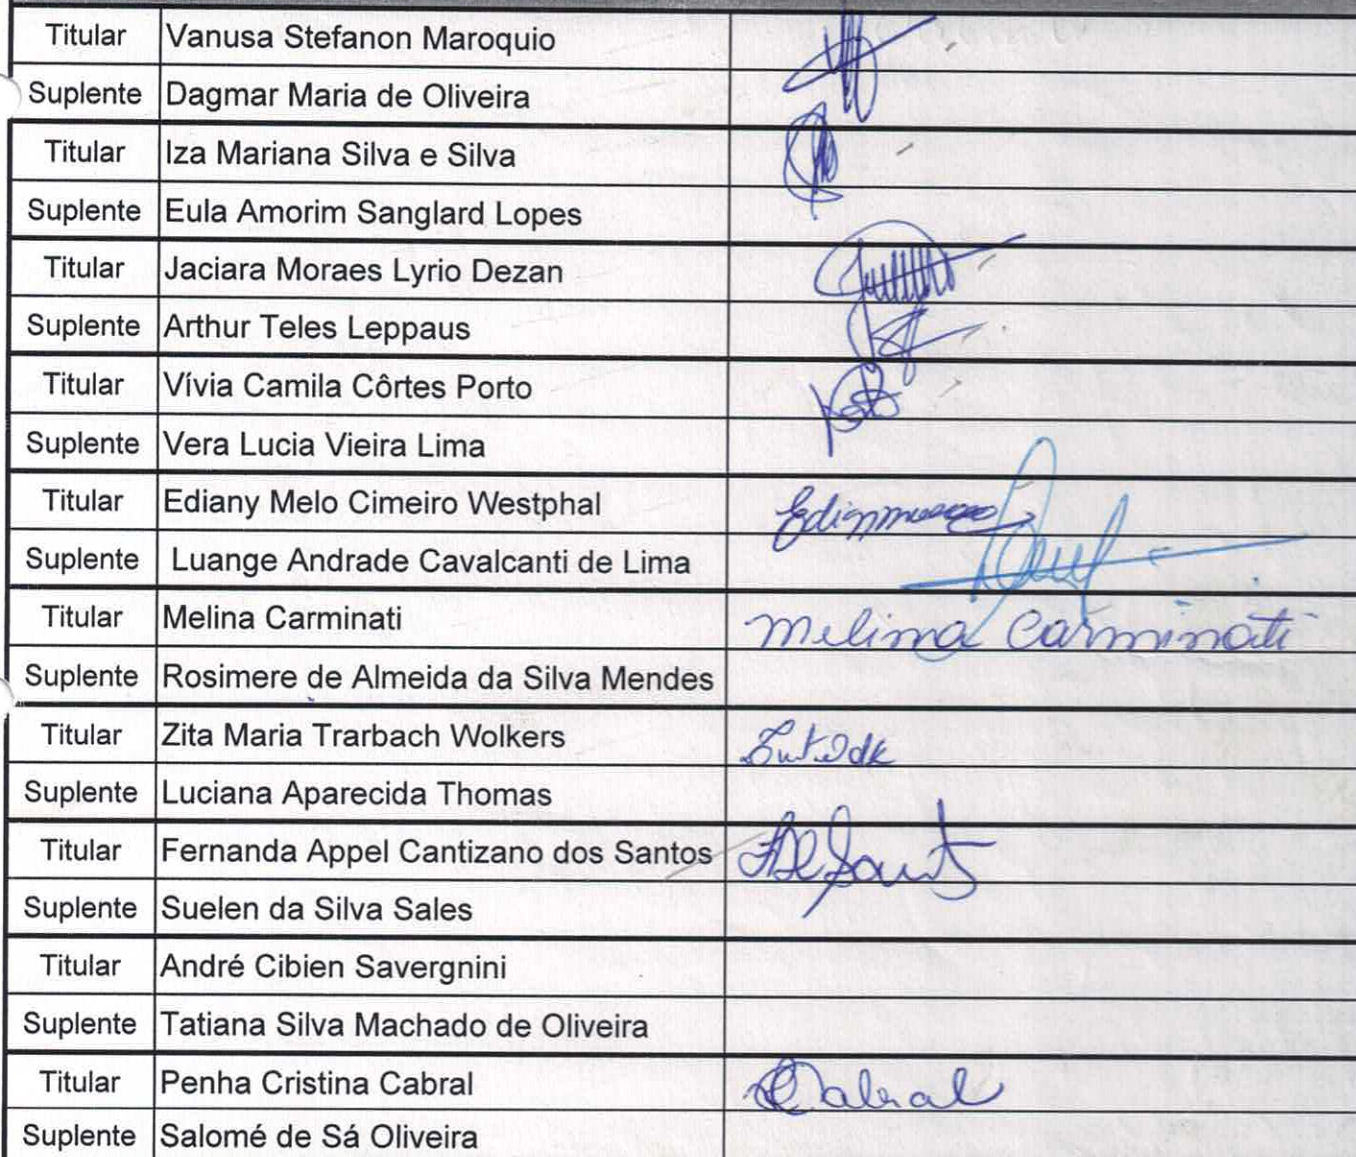 Titular Vanusa Stefanon Maroquio
Suplente Dagmar Maria de Oliveira
Titular Iza Mariana Silva e Silva
Suplente Eula Amorim Sanglard Lopes
Titular Jaciara Moraes Lyrio Dezan
Suplente Arthur Teles Leppaus
Titular Vívia Camila Côrtes Porto
Suplente Vera Lucia Vieira Lima
Titular Ediany Melo Cimeiro Westphal
Suplente Luange Andrade Cavalcanti de Lima
Titular Melina Carminati Melina Carminati
Suplente Rosimere de Almeida da Silva Mendes
Titular Zita Maria Trarbach Wolkers
Suplente Luciana Aparecida Thomas
Titular Fernanda Appel Cantizano dos Santos
Suplente Suelen da Silva Sales
Titular André Cibien Savergnini
Suplente Tatiana Silva Machado de Oliveira
Titular Penha Cristina Cabral Cabral
Suplente Salomé de Sá Oliveira